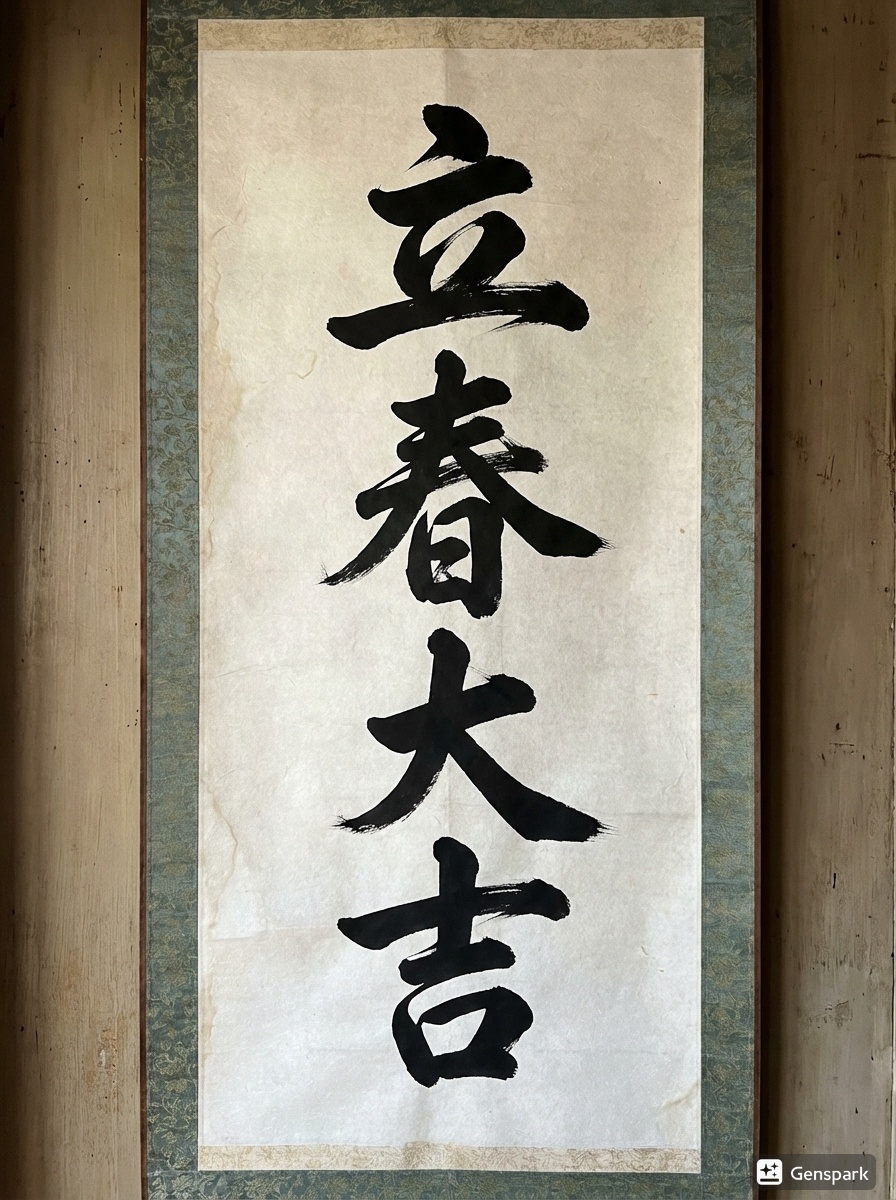 立春大吉
Genspark